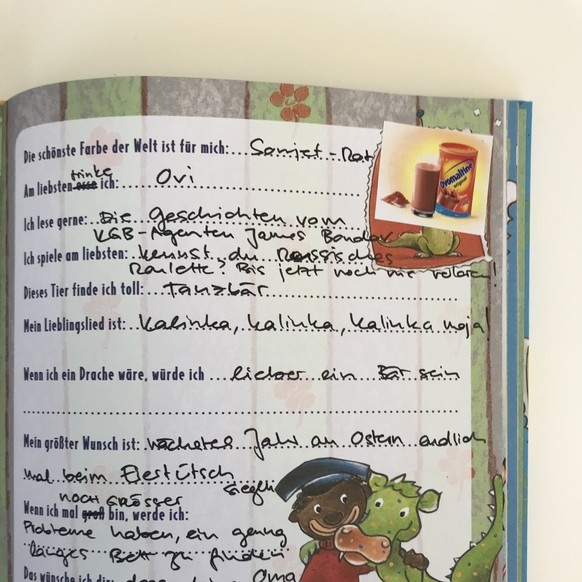 Die schönste Farbe der Welt ist für mich: Samjet-Rot
Ovomaltine
trinke
Am liebsten esse ich: Ovi
Ich lese gerne: Die Geschichten vom
KGB-Agenten James Bondov
Ich spiele am liebsten: kennst du Russisches
Roulette? Bis jetzt noch nie verloren!
Dieses Tier finde ich toll: Tanzbär
Mein Lieblingslied ist: Kalinka, kalinka, kalinka moja!
Wenn ich ein Drache wäre, würde ich lieber ein Bär sein
Mein größter Wunsch ist: nächstes Jahr an Ostern endlich
mal beim Eiertütsch
noch GRÖSSER
Wenn ich mal groß bin, werde ich:
Probleme haben, ein genug
langes Bett zu finden
Das wünsche ich dir: dass
Oma